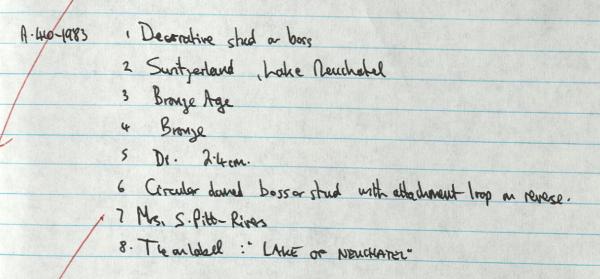 A.440-1983 1 Decorative stud or boss
2 Switzerland, Lake Neuchatel
3 Bronze Age
4 Bronze
5 Di. 2.4cm.
6 Circular domed boss or stud with attachment loop on reverse.
7 Mrs. S. Pitt-Rivers
8. Tie on label : "LAKE OF NEUCHATEL"